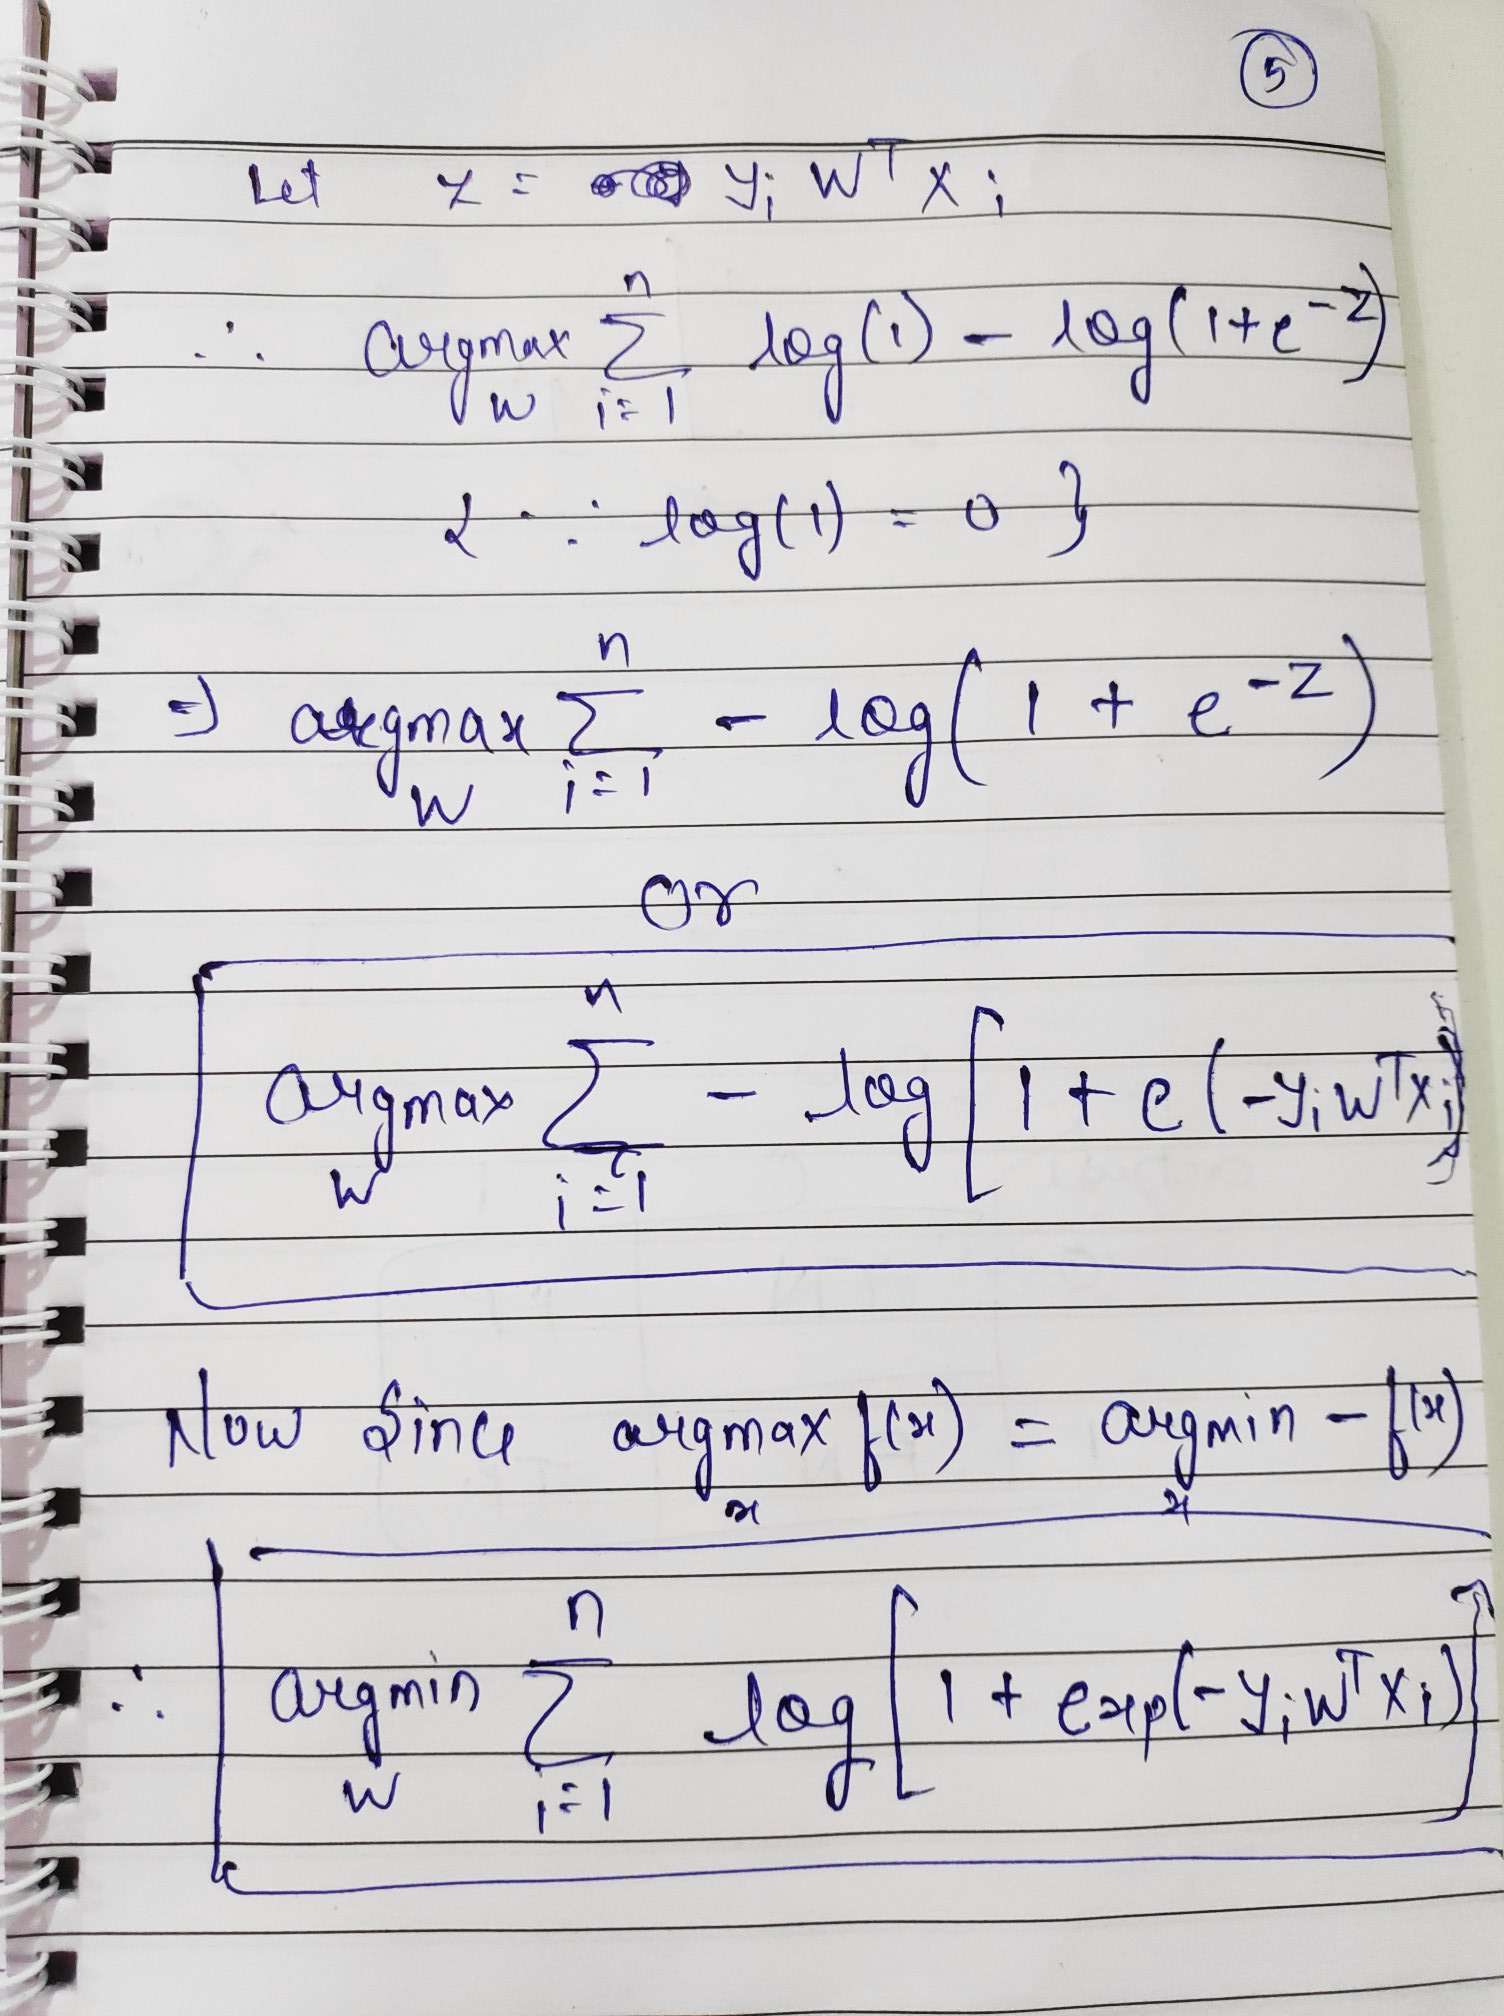 5
Let z = yᵢ Wᵀ xᵢ
∴ argmax_W Σ_{i=1}^{n} log(1) - log(1+e^{-z})
{ ∵ log(1) = 0 }
⇒ argmax_W Σ_{i=1}^{n} - log(1 + e^{-z})
or
argmax_W Σ_{i=1}^{n} - log[1 + e(-yᵢWᵀxᵢ)]
Now Since argmax_x f(x) = argmin_x - f(x)
∴ argmin_W Σ_{i=1}^{n} log[1 + exp(-yᵢWᵀxᵢ)]